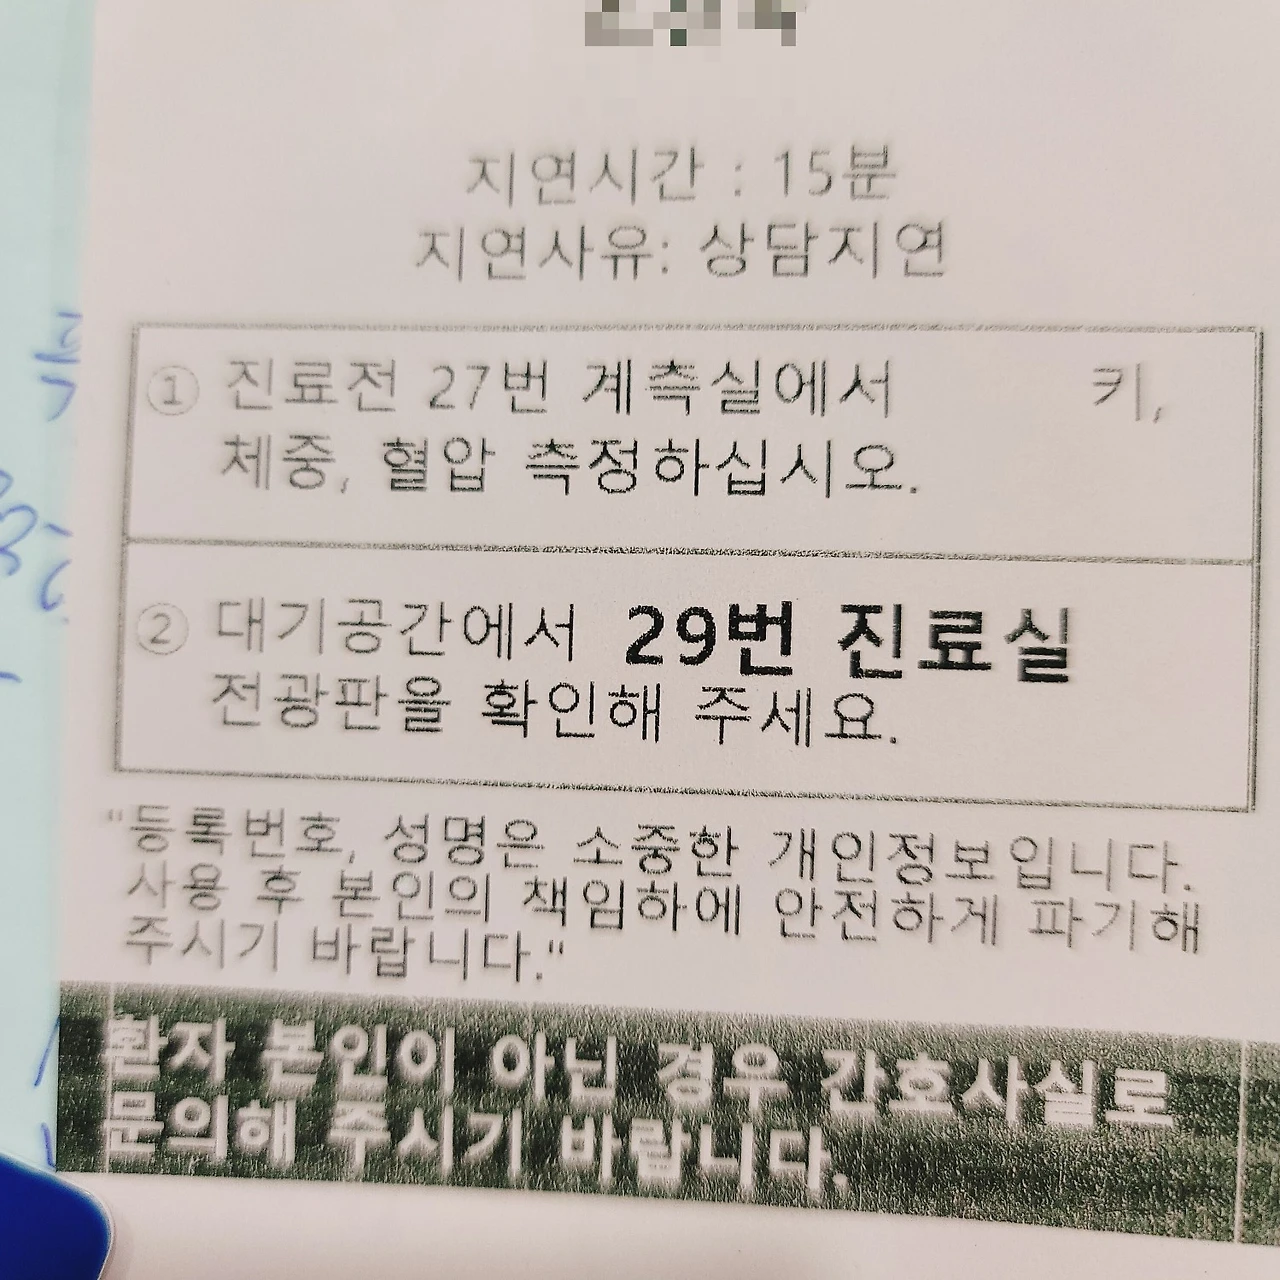 지연시간 : 15분
지연사유: 상담지연
① 진료전 27번 계측실에서 키,
체중, 혈압 측정하십시오.
② 대기공간에서 29번 진료실
전광판을 확인해 주세요.
"등록번호, 성명은 소중한 개인정보입니다.
사용 후 본인의 책임하에 안전하게 파기해
주시기 바랍니다."
환자 본인이 아닌 경우 간호사실로
문의해 주시기 바랍니다.